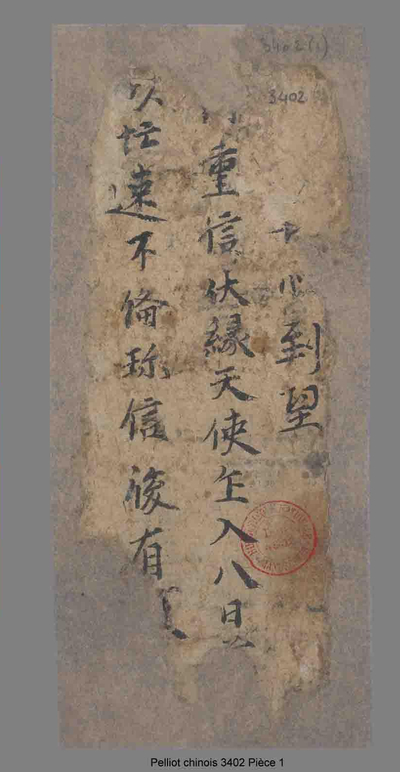 3402(1)
3402
到望
重信伏緣天使入八日
以忙速不俻珎信後有
Pelliot chinois 3402 Pièce 1